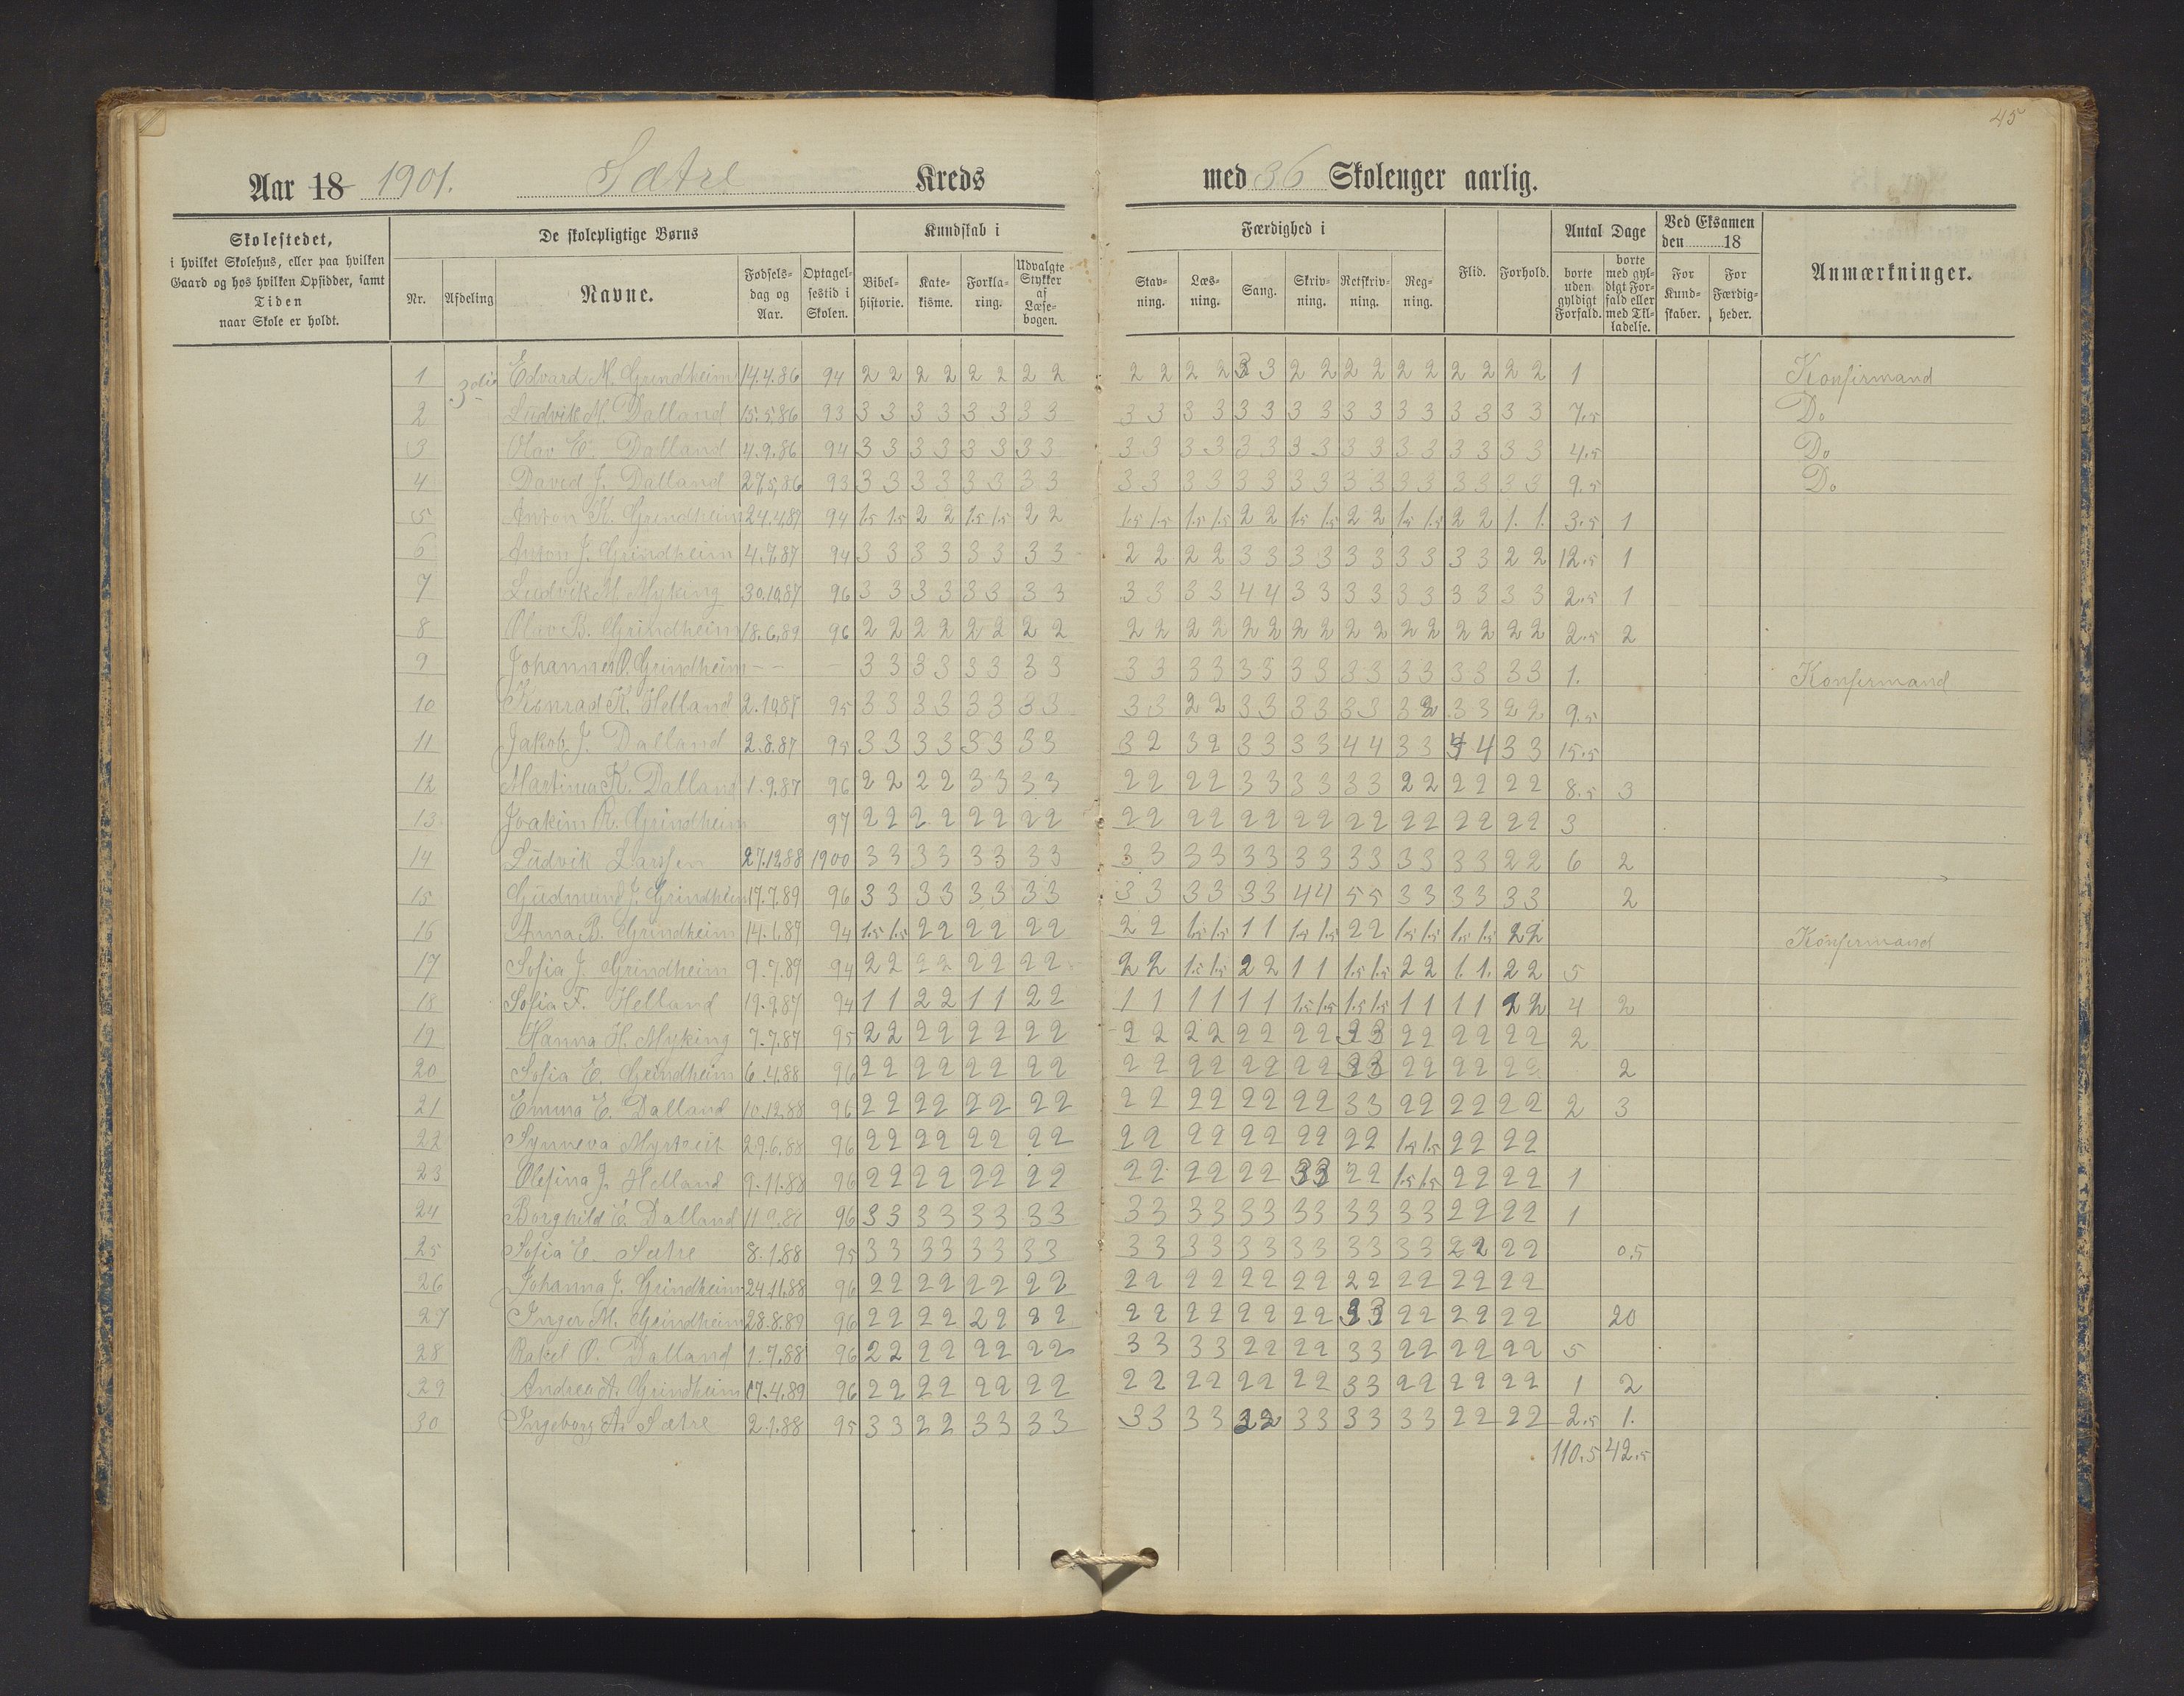 45
Aar 18 1901. Sætre Kreds med 36 Skoleuger aarlig.
Skolestedet, i hvilket Skolehus, eller paa hvilken Gaard og hos hvilken Opsidder, samt Tiden naar Skole er holdt.
De skolepligtige Børns
Nr. Afdeling Navne. Fødsels- dag og Aar. Optagel- sestid i Skolen.
Kundskab i
Bibel- historie. Kate- kisme. Forkla- ring. Udvalgte Stykker af Læse- bogen.
Færdighed i
Stav- ning. Læs- ning. Sang. Skriv- ning. Retskriv- ning. Reg- ning. Flid. Forhold.
Antal Dage
borte uden gyldigt Forfald. borte med gyl- digt For- fald eller med Til- ladelse.
Ved Eksamen den 18
For Kund- skaber. For Færdig- heder.
Anmærkninger.
1 3die Edvard M. Grindheim 14.4.86 94 2 2 2 2 2 2 2 2 2 2 2 2 3 3 2 2 2 2 2 2 2 2 2 2 1 Konfirmand
2 Ludvik M. Dalland 15.5.86 93 3 3 3 3 3 3 3 3 3 3 3 3 3 3 3 3 3 3 3 3 3 3 3 3 7.5 Do
3 Olav E. Dalland 4.9.86 94 3 3 3 3 3 3 3 3 3 3 3 3 3 3 3 3 3 3 3 3 3 3 3 3 4.5 Do
4 David J. Dalland 27.5.86 93 3 3 3 3 3 3 3 3 3 3 3 3 3 3 3 3 3 3 3 3 3 3 3 3 9.5 Do
5 Anton K. Grindheim 24.4.87 94 1.5 1.5 2 2 1.5 1.5 2 2 1.5 1.5 1.5 1.5 2 2 1.5 1.5 2 2 1.5 1.5 2 2 1. 1. 3.5 1
6 Anton J. Grindheim 4.7.87 94 3 3 3 3 3 3 3 3 2 2 2 2 3 3 3 3 3 3 3 3 3 3 2 2 12.5 1
7 Ludvik M. Myking 30.10.87 96 3 3 3 3 3 3 3 3 3 3 3 3 4 4 3 3 3 3 3 3 3 3 3 3 2.5 1
8 Olav B. Grindheim 18.6.89 96 2 2 2 2 2 2 2 2 2 2 2 2 2 2 2 2 2 2 2 2 2 2 2 2 2.5 2
9 Johannes O. Grindheim - - - 3 3 3 3 3 3 3 3 3 3 3 3 3 3 3 3 3 3 3 3 3 3 3 3 1. Konfirmand
10 Konrad K. Helland 2.10.87 95 3 3 3 3 3 3 3 3 3 3 2 2 3 3 3 3 3 3 3 3 3 2 2 9.5
11 Jakob J. Dalland 2.8.87 95 3 3 3 3 3 3 3 3 3 2 3 2 3 3 3 3 4 4 3 3 4 4 3 3 15.5
12 K. Dalland 1.9.87 96 2 2 2 2 3 3 3 3 2 2 2 2 3 3 3 3 3 3 2 2 2 2 2 2 8.5 3
13 Joakim R. Grindheim 97 2 2 2 2 2 2 2 2 2 2 2 2 2 2 2 2 2 2 2 2 2 2 2 2 3
14 Ludvik Larssen 27.12.88 1900 3 3 3 3 3 3 3 3 3 3 3 3 3 3 3 3 3 3 3 3 3 3 2 2 6 2
15 Gudmund J. Grindheim 17.7.89 96 3 3 3 3 3 3 3 3 3 3 3 3 3 3 4 4 5 5 3 3 3 3 3 3 2
16 Anna B. Grindheim 14.1.87 94 1.5 1.5 2 2 2 2 2 2 2 2 1.5 1.5 1 1 1.5 1.5 2 2 1.5 1.5 1.5 1.5 2 2 Konfirmand
17 Sofia J. Grindheim 9.7.87 94 2 2 2 2 2 2 2 2 2 2 1.5 1.5 2 2 1 1 1.5 1.5 2 2 1. 1. 2 2 5
18 Sofia F. Helland 19.9.87 94 1 1 2 2 1 1 2 2 1 1 1 1 1 1 1.5 1.5 1.5 1.5 1 1 1 1 2 2 4 2
19 Hanna H. Myking 7.7.87 95 2 2 2 2 2 2 2 2 2 2 2 2 2 2 2 2 3 3 2 2 2 2 2 2 2
20 Sofia E. Grindheim 6.4.88 96 2 2 2 2 2 2 2 2 2 2 2 2 2 2 2 2 3 3 2 2 2 2 2 2 2
21 Emma E. Dalland 10.12.88 96 2 2 2 2 2 2 2 2 2 2 2 2 2 2 2 2 3 3 2 2 2 2 2 2 2 3
22 Synneva 29.6.88 96 2 2 2 2 2 2 2 2 2 2 2 2 2 2 2 2 2 2 1.5 1.5 2 2 2 2
23 Olefina J. Helland 9.11.88 96 2 2 2 2 2 2 2 2 2 2 2 2 2 2 3 3 2 2 1.5 1.5 2 2 2 2 1
24 Borghild E. Dalland 96 3 3 3 3 3 3 3 3 3 3 3 3 3 3 3 3 3 3 3 3 2 2 2 2 1
25 Sofia E. Sætre 8.1.88 95 3 3 3 3 3 3 3 3 3 3 3 3 3 3 3 3 3 3 3 3 2 2 2 2 0.5
26 Johanna J. Grindheim 24.11.88 96 2 2 2 2 2 2 2 2 2 2 2 2 2 2 2 2 2 2 2 2 2 2 2 2
27 Inger M. Grindheim 28.8.89 96 2 2 2 2 2 2 2 2 2 2 2 2 2 2 2 2 3 3 2 2 2 2 2 2 20
28 Rakel O. Dalland 1.7.88 96 2 2 2 2 2 2 2 2 3 3 3 3 2 2 2 2 3 3 2 2 2 2 2 2 5
29 Andrea A. Grindheim 17.4.89 96 2 2 2 2 2 2 2 2 2 2 2 2 2 2 2 2 3 3 2 2 2 2 2 2 1 2
30 Ingeborg A. Sætre 2.1.88 95 3 3 2 2 3 3 3 3 3 3 3 3 2 2 3 3 3 3 3 3 2 2 2 2 2.5 1.
110.5 42.5